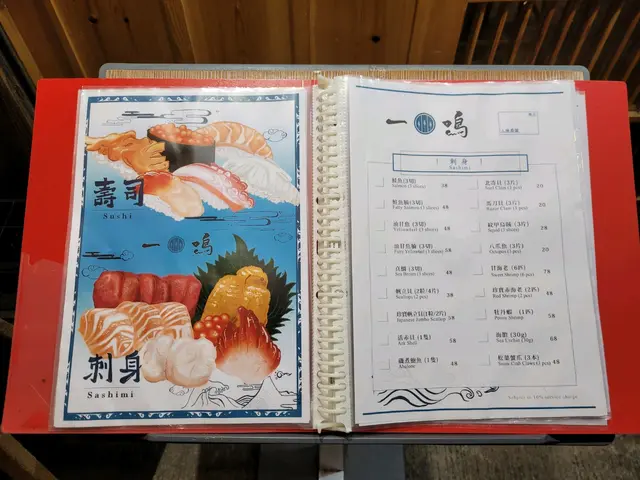 壽司
Sushi
一 鳴
刺身
Sashimi
一 鳴
刺身
Sashimi
鮭魚(3切)
Salmon (3 slices) 38
鮭魚腩(3切)
Fatty Salmon (3 slices) 48
油甘魚(3切)
Yellowtail (3 slices) 48
油甘魚腩(3切)
58
真鯛(3切)
Sea Bream (3 slices) 48
帆立貝(2粒/4片)
Scallops (2 pcs) 38
珍寶帆立貝(1粒/2片)
Japanese Jumbo Scallop 58
活赤貝(1隻)
Ark Shell 58
磯煮鮑魚(1隻)
Abalone 48
北寄貝(3片)
20
(3片)
20
(3片)
Squid (3 slices) 28
八爪魚(3片)
Octopus (3 pcs) 20
甘海老(6匹)
Sweet Shrimp (6 pcs) 78
珍寶赤海老(2匹)
Red Shrimp (2 pcs) 48
牡丹蝦(1匹)
Peony Shrimp 58
海膽(30g)
Sea Urchin (30g) 68
松葉蟹爪(3本)
Snow Crab Claws (3 pcs) 48
Subject to 10% service charge